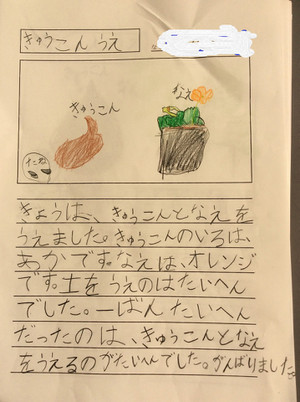 きゅうこん うえ
なえ
きゅうこん
たね
きょうは、きゅうこんとなえを
うえました。きゅうこんのいろは、
あかです。なえは、オレンジ
です。土を うえのはたいへん
でした。一ばん たいへん
だったのは、きゅうこんとなえ
をうえるのがたいへんでした。がんばりました。